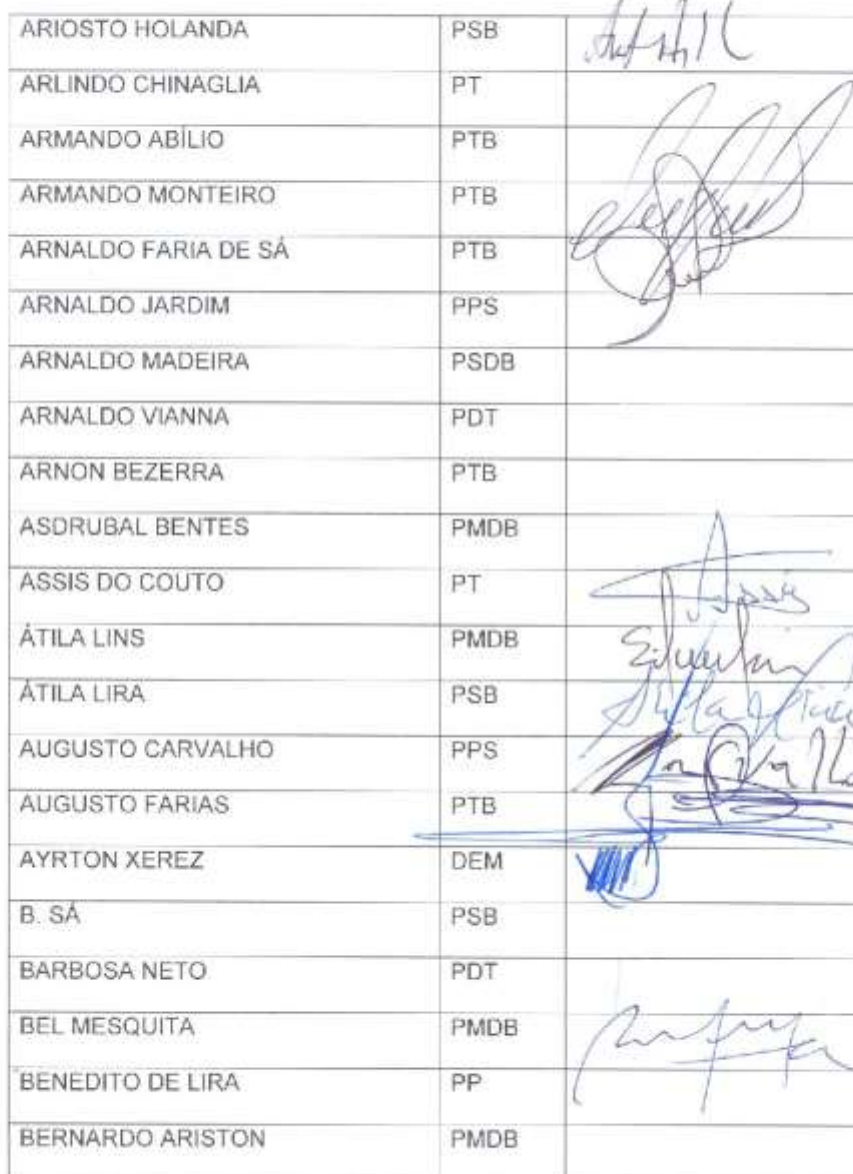 ARIOSTO HOLANDA PSB
ARLINDO CHINAGLIA PT
ARMANDO ABÍLIO PTB
ARMANDO MONTEIRO PTB
ARNALDO FARIA DE SÁ PTB
ARNALDO JARDIM PPS
ARNALDO MADEIRA PSDB
ARNALDO VIANNA PDT
ARNON BEZERRA PTB
ASDRUBAL BENTES PMDB
ASSIS DO COUTO PT Assis
ÁTILA LINS PMDB
ÁTILA LIRA PSB
AUGUSTO CARVALHO PPS
AUGUSTO FARIAS PTB
AYRTON XEREZ DEM
B. SÁ PSB
BARBOSA NETO PDT
BEL MESQUITA PMDB
BENEDITO DE LIRA PP
BERNARDO ARISTON PMDB